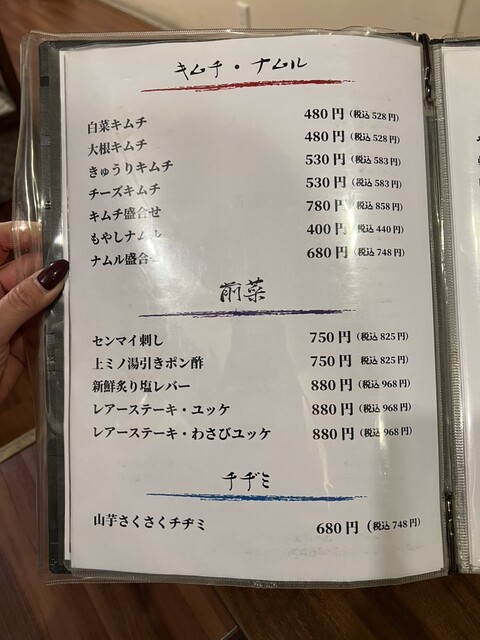 キムチ・ナムル
白菜キムチ 480円（税込 528円）
大根キムチ 480円（税込 528円）
きゅうりキムチ 530円（税込 583円）
チーズキムチ 530円（税込 583円）
キムチ盛合せ 780円（税込 858円）
もやしナムル 400円（税込 440円）
ナムル盛合せ 680円（税込 748円）
前菜
センマイ刺し 750円（税込 825円）
上ミノ湯引きポン酢 750円 税込 825円）
新鮮炙り塩レバー 880円（税込 968円）
レアーステーキ・ユッケ 880円（税込 968円）
レアーステーキ・わさびユッケ 880円（税込 968円）
チヂミ
山芋さくさくチヂミ 680円（税込 748円）